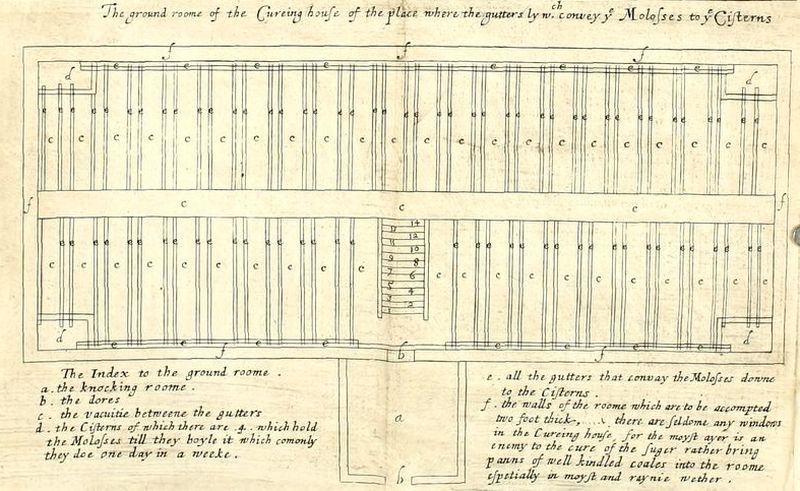 The ground roome of the Cureing house of the place where the gutters ly wch convey ye Molosses to ye Cisterns
f f f
d e e e e e e e d
e e e e e e e e e e e e e e e e e e
c c c c c c c c c c c c c c c c c c c c c c c
f c c c f
14
13
12
11
10
9
8
7
6
5
4
3
2
1
e e e e e e e e e e e e e e e e e
c c c c c c c c c c c c c c c c c c c c
d e f e b e f e d
The Index to the ground roome .
a . the knocking roome .
b . the dores
c . the vacuitie betweene the gutters
d . the Cisterns of which there are 4 . which hold
the Molosses till they boyle it which comonly
they doe one day in a weeke .
a
b
e . all the gutters that convay the Molosses downe
to the Cisterns .
f . the walls of the roome which are to be accompted
two foot thick , there are seldome any windows
in the Cureing house for the moyst ayer is an
enemy to the cure of the suger rather bring
panns of well kindled coales into the roome
espetially in moyst and raynie wether .